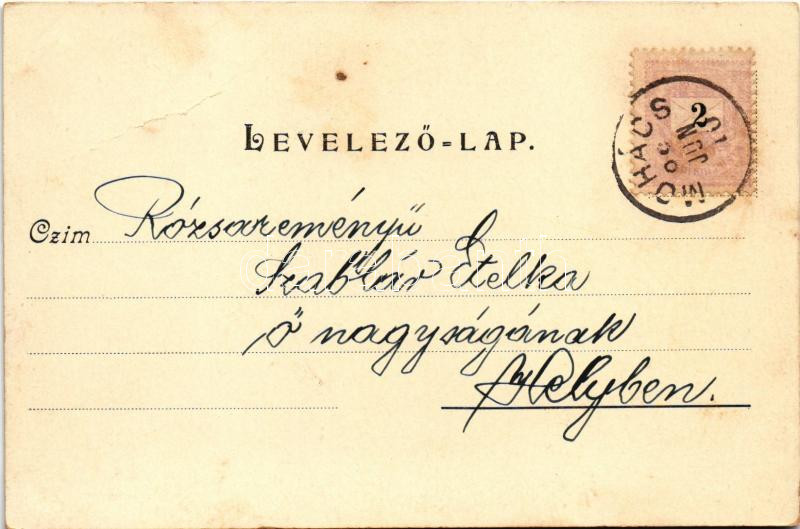 LEVELEZŐ=LAP.
2
MOHÁCS
JUN
10
Czim Rózsareményű
Etelka
ő nagyságának
Helyben.